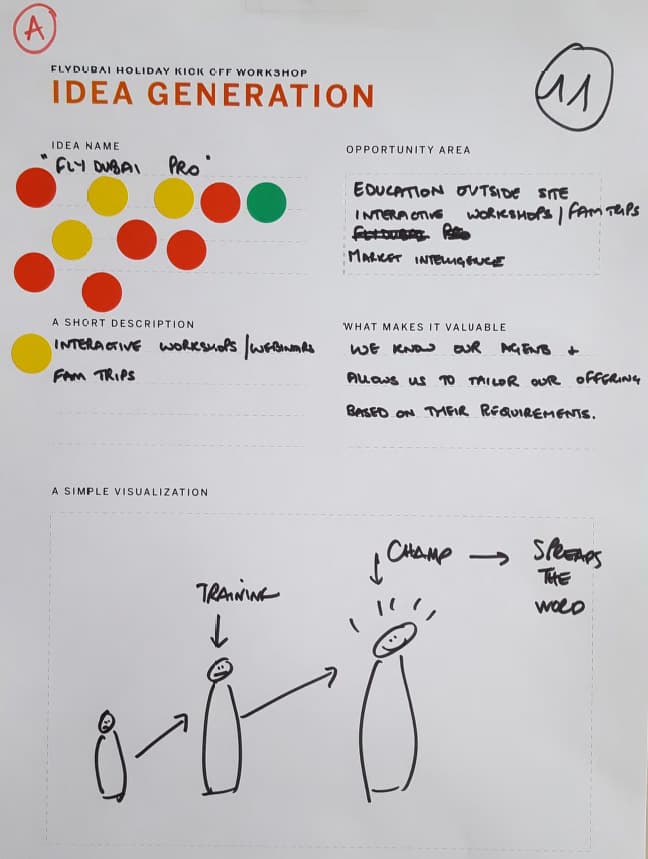 A
11
FLYDUBAI HOLIDAY KICK OFF WORKSHOP
IDEA GENERATION
IDEA NAME
"FLY DUBAI PRO"
OPPORTUNITY AREA
EDUCATION OUTSIDE SITE
INTERACTIVE WORKSHOPS / FAM TRIPS
MARKET INTELLIGENCE
A SHORT DESCRIPTION
INTERACTIVE WORKSHOPS / WEBINARS
FAM TRIPS
WHAT MAKES IT VALUABLE
WE KNOW OUR AGENTS +
ALLOWS US TO TAILOR OUR OFFERING
BASED ON THEIR REQUIREMENTS.
A SIMPLE VISUALIZATION
TRAINING
CHAMP → SPREADS
THE
WORD